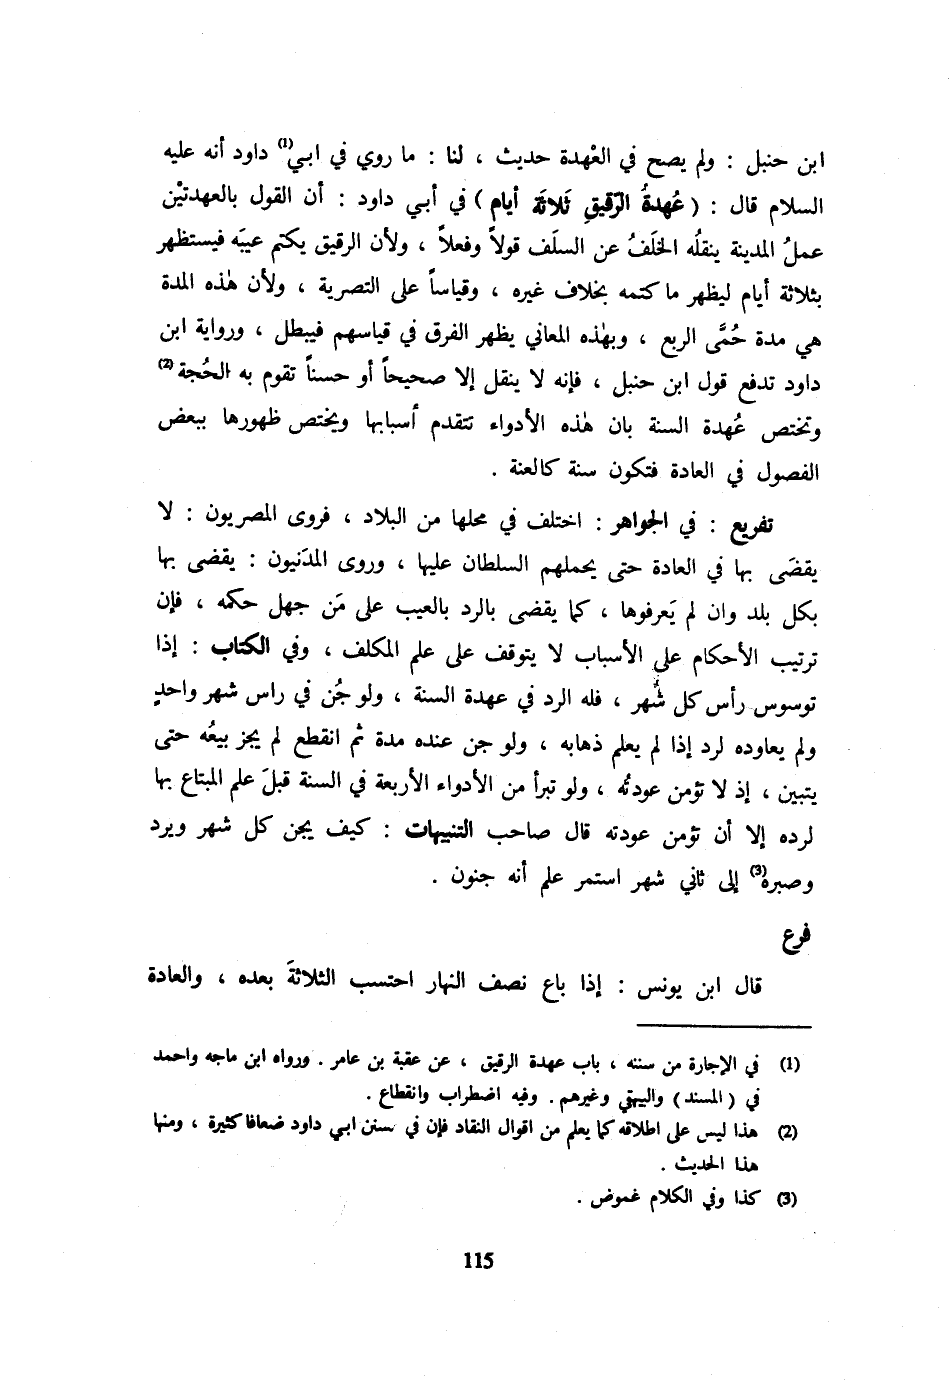 ابن حنبل : ولم يصح في العْهدة حديث ، لنا : ما روي في ابي(1) داود أنه عليه
السلام قال : ( عُهدةُ الرّقيقِ ثَلاثَة أيام ) في أبي داود : أن القول بالعهدتيْن
عملُ المدينة ينقلُه الخلَفُ عن السلَف قولاً وفعلاً ، ولأن الرقيق يكتم عيبَه فيستظهر
بثلاثة أيام ليظهر ما كتمه بخلاف غيره ، وقياساً على التصرية ، ولأن هٰذه المدة
هي مدة حُمَّى الربع ، وبهٰذه المعاني يظهر الفرق في قياسهم فيبطل ، ورواية ابن
داود تدفع قول ابن حنبل ، فإنه لا ينقل إلا صحيحاً أو حسناً تقوم به الحُجة(2)
وتختص عُهدة السنة بان هٰذه الأدواء تتقدم أسبابها ويختص ظهورها ببعض
الفصول في العادة فتكون سنة كالعنة .
تفريع : في الجواهر : اختلف في محلها من البلاد ، فروى المصريون : لا
يقضَى بها في العادة حتى يحملهم السلطان عليها ، وروى المدَنيون : يقضى بها
بكل بلد وان لم يَعرفوها ، كما يقضى بالرد بالعيب على مَن جهل حكمه ، فإن
ترتيب الأحكام على الأسباب لا يتوقف على علم المكلف ، وفي الكتاب : إذا
توسوس رأس كل شهر ، فله الرد في عهدة السنة ، ولو جُن في راس شهر واحدٍ
ولم يعاوده لرد إذا لم يعلم ذهابه ، ولو جن عنده مدة ثم انقطع لم يجز بيعُه حتى
يتبين ، إذ لا تؤمن عودتُه ، ولو تبرأ من الأدواء الأربعة في السنة قبلَ علم المبتاع بها
لرده إلا أن تؤمن عودته قال صاحب التنبيهات : كيف يجن كل شهر ويرد
وصبره(3) إلى ثاني شهر استمر علم أنه جنون .
فرع
قال ابن يونس : إذا باع نصف النهار احتسب الثلاثةَ بعده ، والعادة
(1) في الإجارة من سننه ، باب عهدة الرقيق ، عن عقبة بن عامر . ورواه ابن ماجه واحمد
في ( المسند ) والبيهقي وغيرهم . وفيه اضطراب وانقطاع .
(2) هذا ليس على اطلاقه كما يعلم من اقوال النقاد فإن في سنن ابي داود ضعافا كثيرة ، ومنها
هذا الحديث .
(3) كذا وفي الكلام غموض .
115